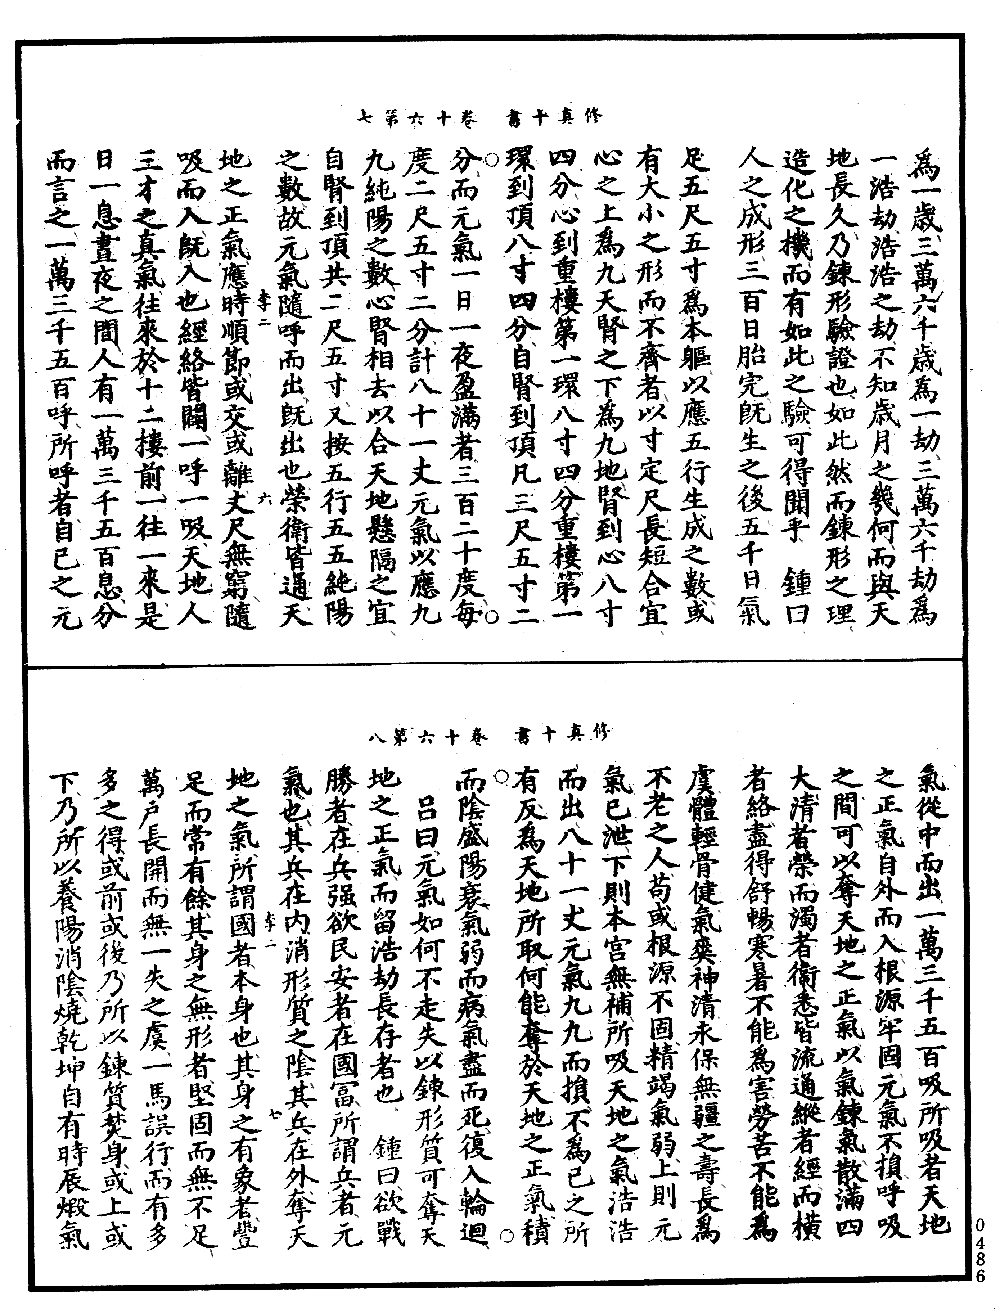 修真十書　卷十六第七
爲一歲三萬六千歲爲一劫三萬六千劫爲
一浩劫浩浩之劫不知歲月之幾何而與天
地長久乃鍊形驗證也如此然而鍊形之理
造化之機而有如此之驗可得聞乎　鍾曰
人之成形三百日胎完旣生之後五千日氣
足五尺五寸爲本軀以應五行生成之數或
有大小之形而不齊者以寸定尺長短合宜
心之上爲九天腎之下爲九地腎到心八寸
四分心到重樓第一環八寸四分重樓第一
環到頂八寸四分自腎到頂凡三尺五寸二
分而元氣一日一夜盈滿者三百二十度每
度二尺五寸二分計八十一丈元氣以應九
九純陽之數心腎相去以合天地懸隔之宜
自腎到頂共二尺五寸又按五行五五純陽
之數故元氣隨呼而出旣出也榮衛皆通天
李二　六
地之正氣應時順節或交或離丈尺無窮隨
吸而入旣入也經絡皆闢一呼一吸天地人
三才之真氣往來於十二樓前一往一來是
日一息晝夜之間人有一萬三千五百息分
而言之一萬三千五百呼所呼者自己之元
修真十書　卷十六第八
氣從中而出一萬三千五百吸所吸者天地
之正氣自外而入根源牢固元氣不損呼吸
之間可以奪天地之正氣以氣鍊氣散滿四
大清者榮而濁者衛悉皆流通縱者經而橫
者絡盡得舒暢寒暑不能爲害勞苦不能爲
虞體輕骨健氣爽神清永保無疆之壽長爲
不老之人苟或根源不固精竭氣弱上則元
氣已泄下則本宮無補所吸天地之氣浩浩
而出八十一丈元氣九九而損不爲己之所
有反爲天地所取何能奪於天地之正氣積
而陰盛陽衰氣弱而病氣盡而死復入輪迴
呂曰元氣如何不走失以鍊形質可奪天
地之正氣而留浩劫長存者也　鍾曰欲戰
勝者在兵强欲民安者在國富所謂兵者元
氣也其兵在内消形質之陰其兵在外奪天
李二　七
地之氣所謂國者本身也其身之有象者豐
足而常有餘其身之無形者堅固而無不足
萬戶長開而無一失之虞一馬誤行而有多
多之得或前或後乃所以鍊質焚身或上或
下乃所以養陽消陰燒乾坤自有時辰煅氣
0486